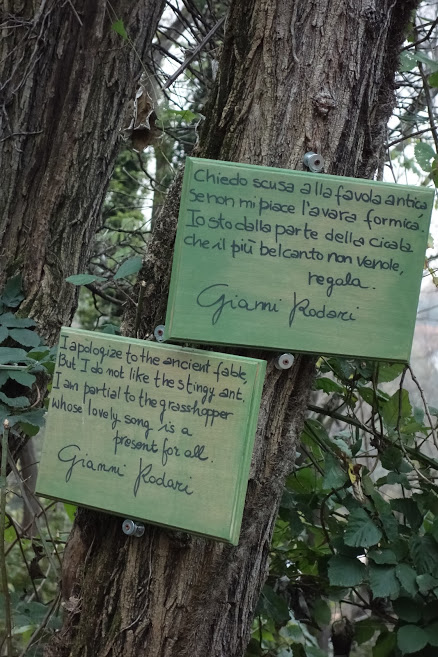 Chiedo scusa alla favola antica
se non mi piace l'avara formica,
Io sto dalla parte della cicala
che il più bel canto non vende,
regala.
Gianni Rodari
I apologize to the ancient fable,
But I do not like the stingy ant.
I am partial to the grasshopper
whose lovely song is a
present for all.
Gianni Rodari